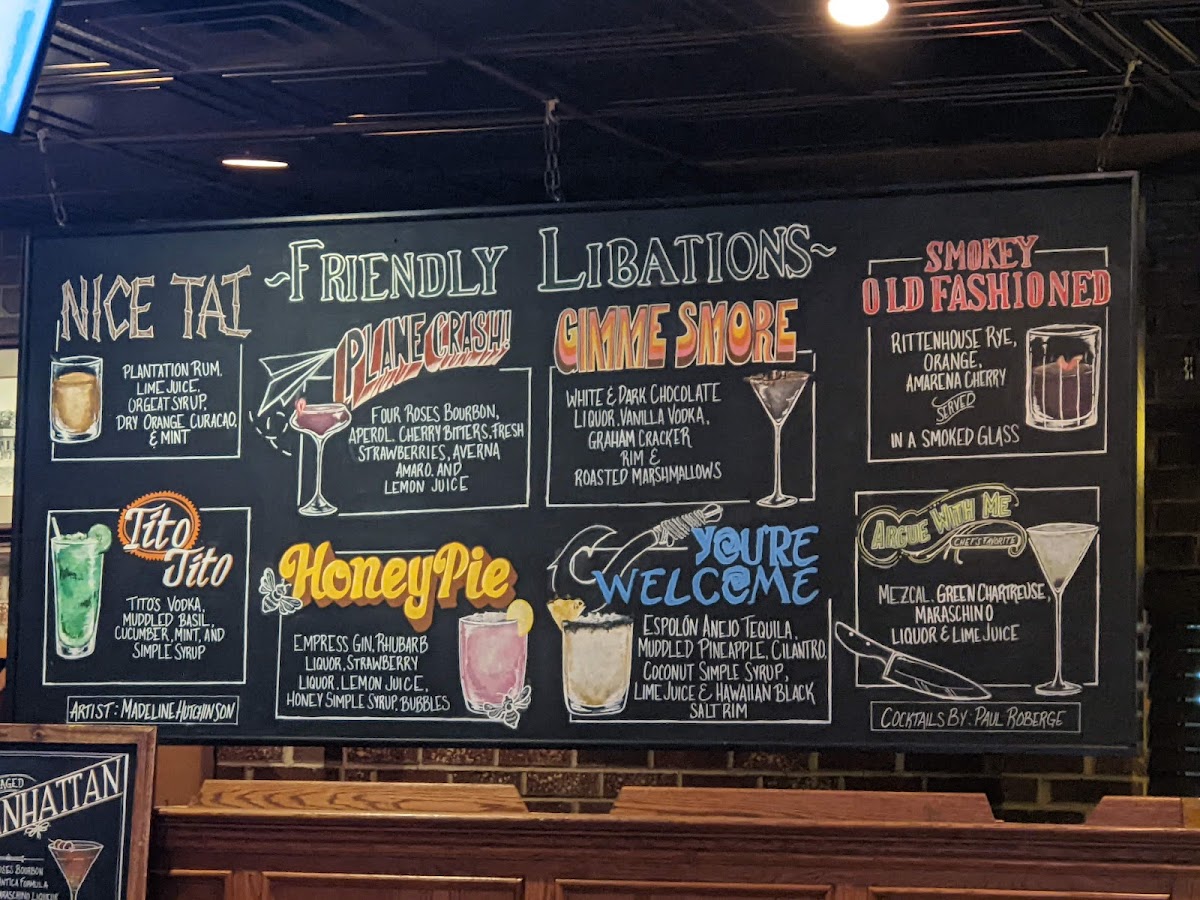 ~FRIENDLY LIBATIONS~
NICE TAI
PLANTATION RUM,
LIME JUICE,
ORGEAT SYRUP,
DRY ORANGE CURACAO,
& MINT
PLANE CRASH!
FOUR ROSES BOURBON,
APEROL, CHERRY BITTERS, FRESH
STRAWBERRIES, AVERNA
AMARO, AND
LEMON JUICE
GIMME SMORE
WHITE & DARK CHOCOLATE
LIQUOR, VANILLA VODKA,
GRAHAM CRACKER
RIM &
ROASTED MARSHMALLOWS
SMOKEY
OLD FASHIONED
RITTENHOUSE RYE,
ORANGE,
AMARENA CHERRY
SERVED
IN A SMOKED GLASS
Tito
Tito
TITO'S VODKA,
MUDDLED BASIL,
CUCUMBER, MINT, AND
SIMPLE SYRUP
HoneyPie
EMPRESS GIN, RHUBARB
LIQUOR, STRAWBERRY
LIQUOR, LEMON JUICE,
HONEY SIMPLE SYRUP, BUBBLES
YOU'RE
WELCOME
ESPOLÓN ANEJO TEQUILA,
MUDDLED PINEAPPLE, CILANTRO,
COCONUT SIMPLE SYRUP,
LIME JUICE & HAWAIIAN BLACK
SALT RIM
ARGUE WITH ME
CHEF'S FAVORITE
MEZCAL, GREEN CHARTREUSE,
MARASCHINO
LIQUOR & LIME JUICE
ARTIST: MADELINE HUTCHINSON
COCKTAILS BY: PAUL ROBERGE
AGED
NHATTAN
OSES BOURBON
ANTICA FORMULA
MARASCHINO LIQUEUR